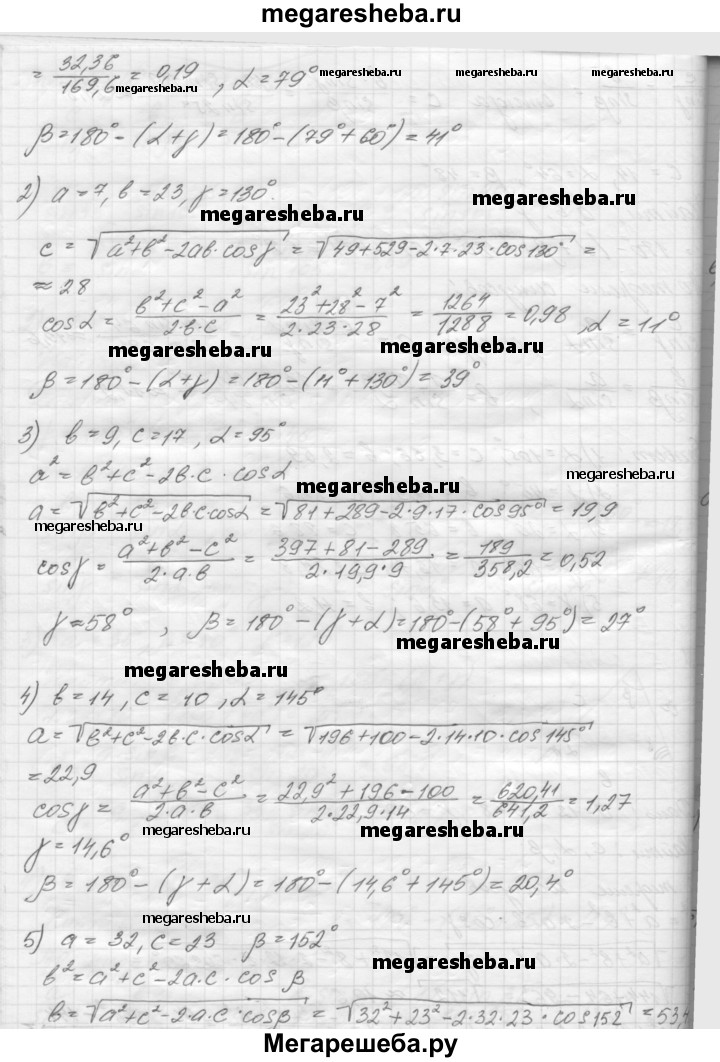 megaresheba.ru
= 32,36/169,6 = 0,19 , α = 79°
megaresheba.ru megaresheba.ru megaresheba.ru
β = 180° - (α + γ) = 180° - (79° + 60°) = 41°
2) a = 7, b = 23, γ = 130°.
megaresheba.ru megaresheba.ru
c = √(a² + b² - 2ab · cosγ) = √(49 + 529 - 2 · 7 · 23 · cos130°) =
≈ 28
cosα = (b² + c² - a²)/(2 · b · c) = (23² + 28² - 7²)/(2 · 23 · 28) = 1264/1288 = 0,98 , α = 11°
megaresheba.ru megaresheba.ru
β = 180° - (α + γ) = 180° - (11° + 130°) = 39°
3) b = 9, c = 17, α = 95°
a² = b² + c² - 2b · c · cosα
megaresheba.ru
a = √(b² + c² - 2b · c · cosα) = √(81 + 289 - 2 · 9 · 17 · cos95°) = 19,9
megaresheba.ru megaresheba.ru
cosγ = (a² + b² - c²)/(2 · a · b) = (397 + 81 - 289)/(2 · 19,9 · 9) = 189/358,2 = 0,52
γ ≈ 58° , β = 180° - (γ + α) = 180° - (58° + 95°) = 27°
megaresheba.ru
megaresheba.ru
4) b = 14, c = 10, α = 145°
a = √(b² + c² - 2b · c · cosα) = √(196 + 100 - 2 · 14 · 10 · cos145°)
= 22,9
cosγ = (a² + b² - c²)/(2 · a · b) = (22,9² + 196 - 100)/(2 · 22,9 · 14) = 620,41/641,2 = 1,27
megaresheba.ru megaresheba.ru
γ = 14,6°
β = 180° - (γ + α) = 180° - (14,6° + 145°) = 20,4°
megaresheba.ru
5) a = 32, c = 23 β = 152°
b² = a² + c² - 2a · c · cosβ
megaresheba.ru
b = √(a² + c² - 2 · a · c · cosβ) = √(32² + 23² - 2 · 32 · 23 · cos152°) = 53,
Мегарешеба.ру